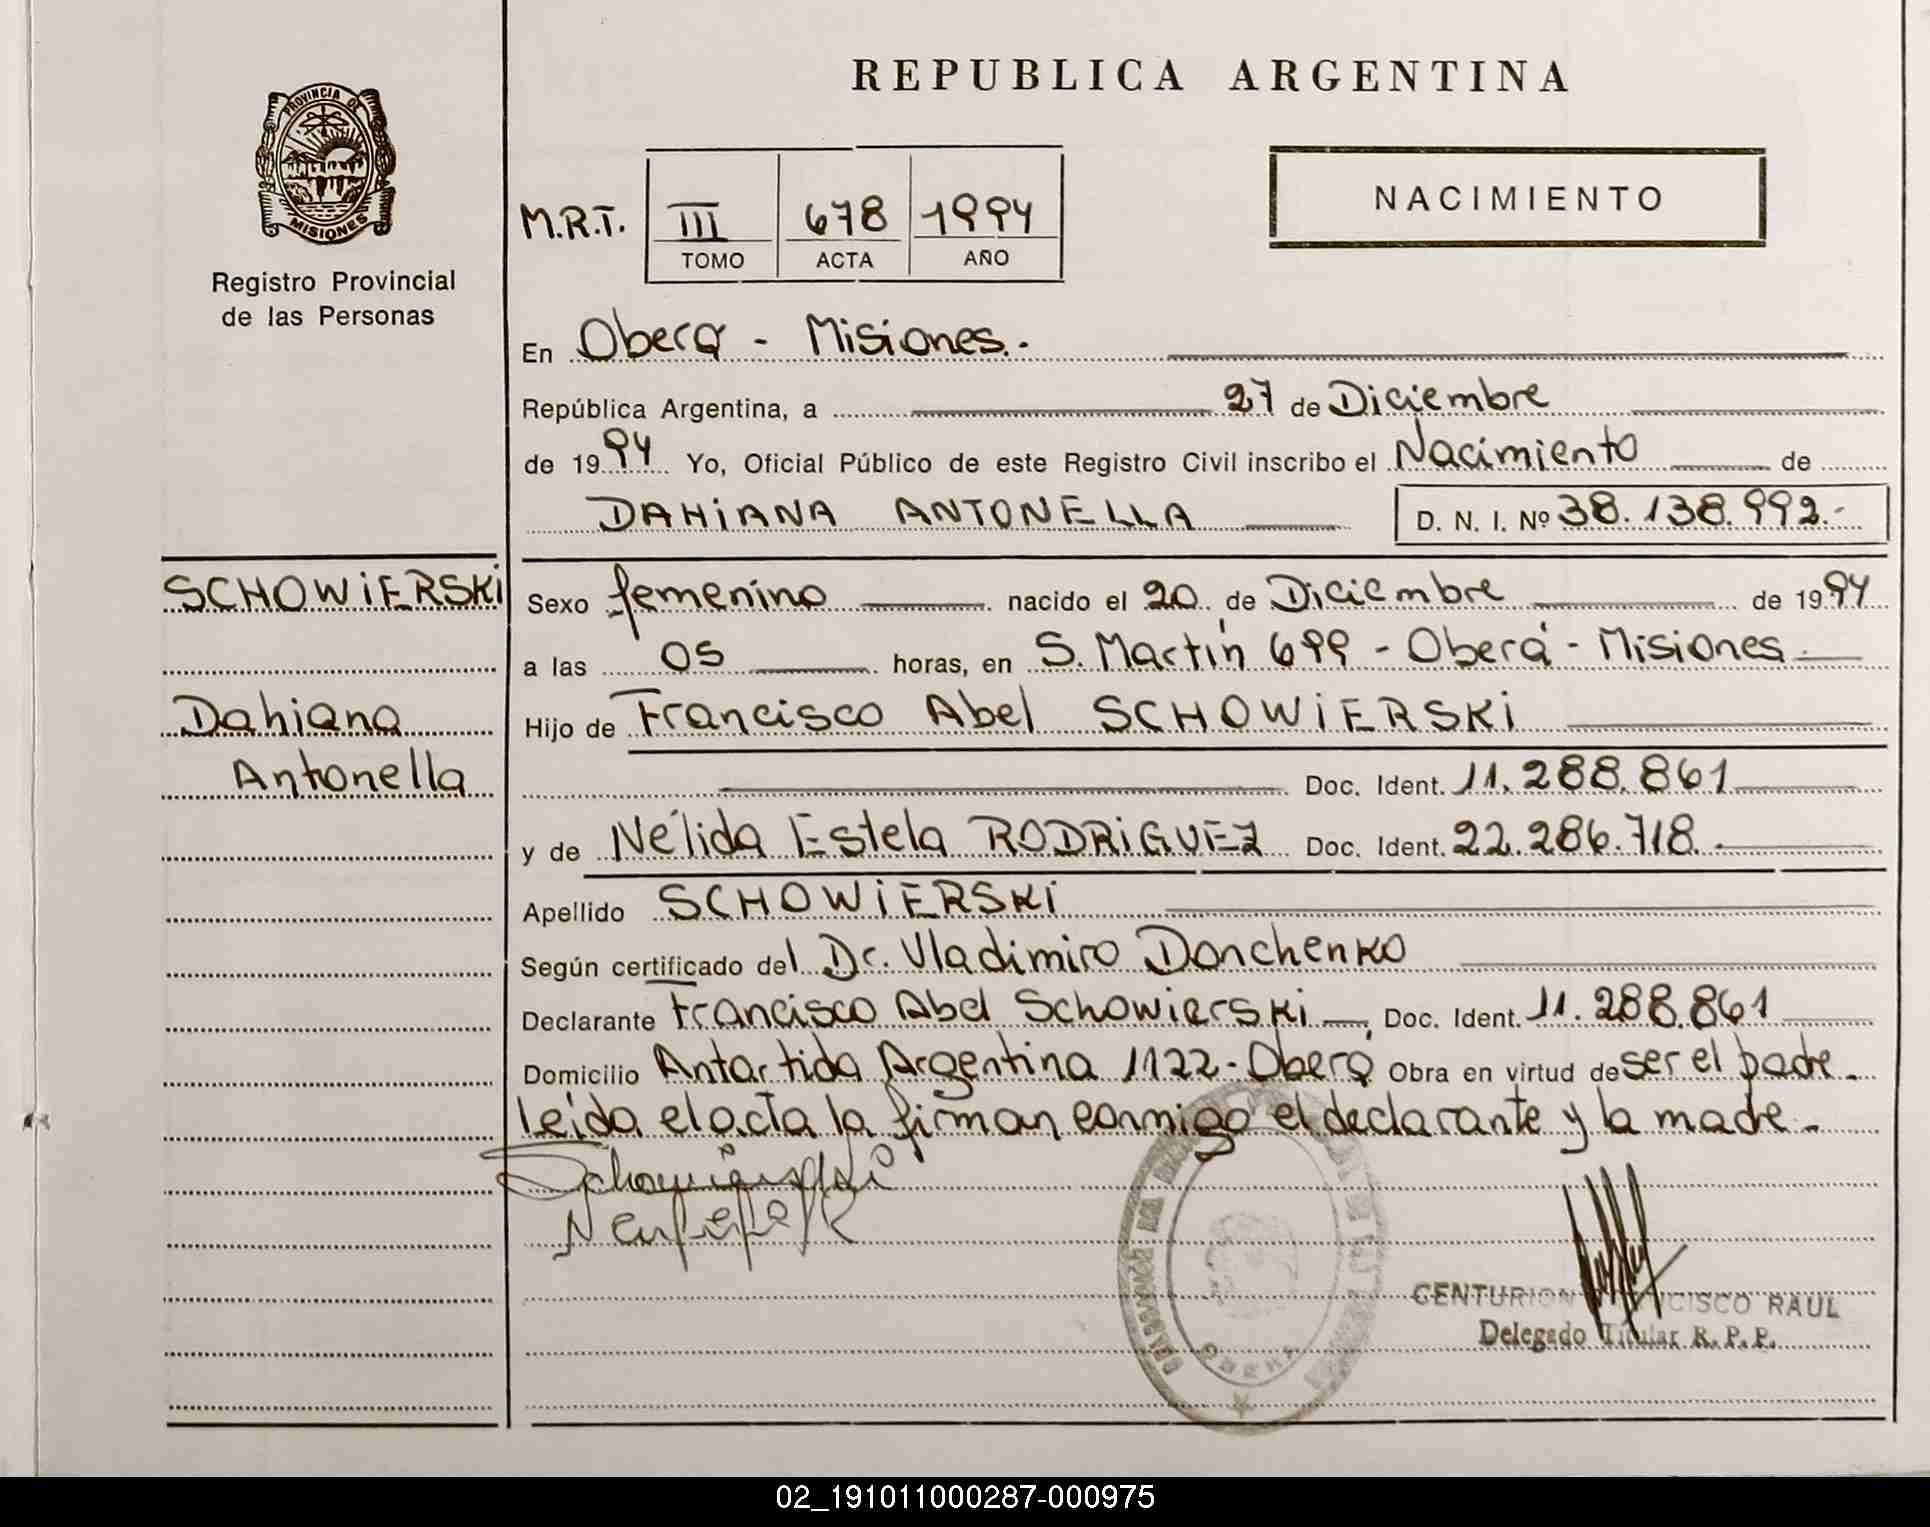 REPUBLICA ARGENTINA
PROVINCIA DE
MISIONES
Registro Provincial
de las Personas
NACIMIENTO
M.R.T. III 678 1994
TOMO ACTA AÑO
En Oberá - Misiones.-
República Argentina, a 27 de Diciembre
de 1994 Yo, Oficial Público de este Registro Civil inscribo el Nacimiento de
DAHiANA ANTONELLA D. N. I. Nº 38.138.992.-
SCHOWiERSKi
Dahiana
Antonella
Sexo femenino nacido el 20 de Diciembre de 1994
a las 05 horas, en S. Martín 699 - Oberá - Misiones
Hijo de Francisco Abel SCHOWiERSKi
Doc. Ident. 11.288.861
y de Nélida Estela RODRiGUEZ Doc. Ident. 22.286.718.-
Apellido SCHOWiERSKi
Según certificado del Dr. Vladimiro Donchenko
Declarante Francisco Abel Schowierski, Doc. Ident. 11.288.861
Domicilio Antartida Argentina 1122 - Oberá Obra en virtud de ser el padre.
leída el acta la firman conmigo el declarante y la madre.-
Schowierski
CENTURION FRANCISCO RAUL
Delegado Titular R. P. P.
02_191011000287-000975